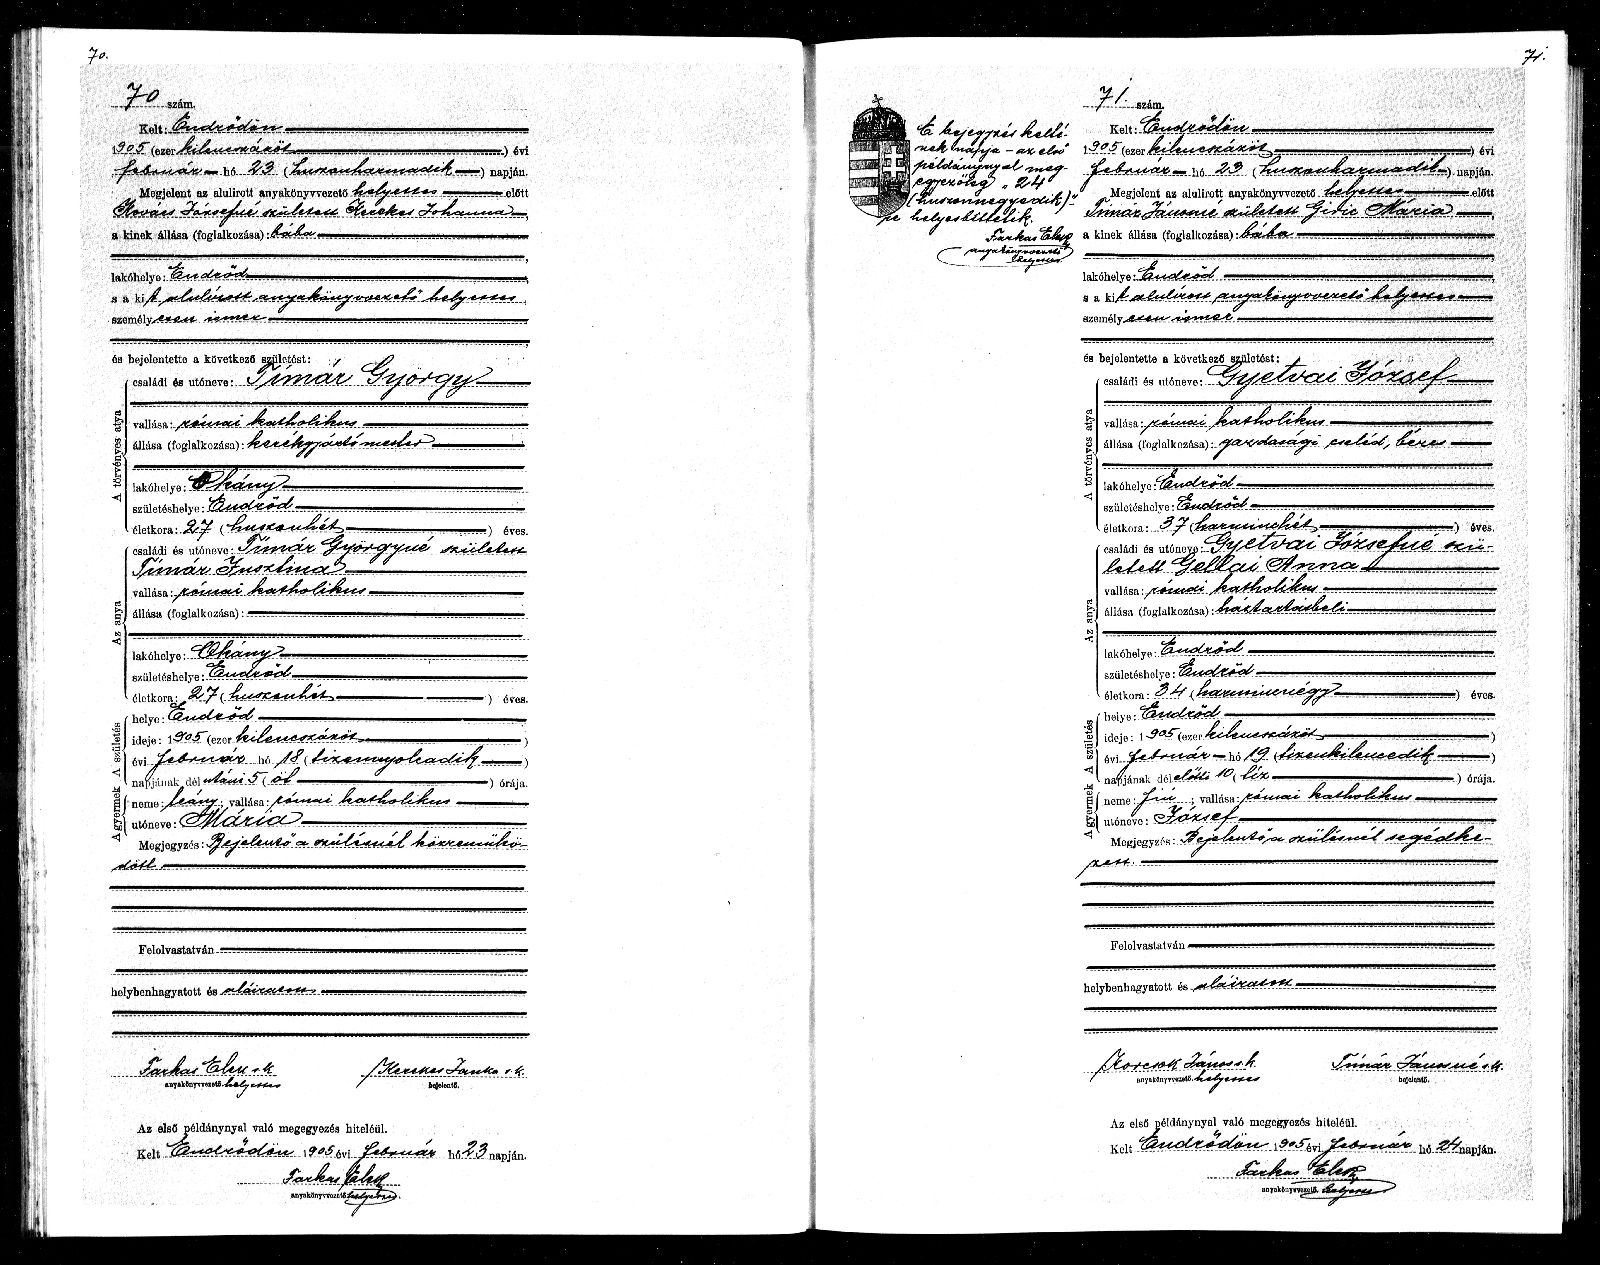 70.
70 szám.
Kelt: Endrődön
1905 (ezer kilencszázöt ) évi
február hó 23 (huszonharmadik ) napján.
Megjelent az alulirott anyakönyvvezető helyettes előtt
Kovács Józsefné született Kerekes Johanna
a kinek állása (foglalkozása): bába
lakóhelye: Endrőd
s a kit alulírott anyakönyvvezető helyettes
személyesen ismer
és bejelentette a következő születést:
A törvényes atya
családi és utóneve: Tímár György
vallása: római katholikus
állása (foglalkozása): kerékgyártó mester
lakóhelye: Okány
születéshelye: Endrőd
életkora: 27 (huszonhét ) éves.
Az anya
családi és utóneve: Tímár Györgyné született
Tímár Jusztina
vallása: római katholikus
állása (foglalkozása):
lakóhelye: Okány
születéshelye: Endrőd
életkora: 27 (huszonhét ) éves.
A születés
helye: Endrőd
ideje: 1905 (ezer kilencszázöt )
évi február hó 18 (tizennyolcadik )
napjának délutáni 5 (öt ) órája.
A gyermek
neme: leány; vallása: római katholikus
utóneve: Mária
Megjegyzés: Bejelentő a szülésnél közremükö-
dött.
Felolvastatván
helybenhagyatott és aláiratott
Farkas Elek sk Kerekes Janka s.k.
anyakönyvvezető. helyettes bejelentő.
Az első példánynyal való megegyezés hiteléül.
Kelt Endrődön 1905 évi február hó 23 napján.
Farkas Elek
anyakönyvvezető helyettes.
71.
E bejegyzés kelté-
nek napja – az első
példánnyal meg-
egyezőleg „24
(huszonnegyedik)"
re helyesbittetik.
Farkas Elek
anyakönyvvezető
helyettes
71. szám.
Kelt: Endrődön
1905 (ezer kilencszázöt ) évi
február hó 23 (huszonharmadik ) napján.
Megjelent az alulirott anyakönyvvezető helyettes előtt
Tímár Jánosné született Mária
a kinek állása (foglalkozása): bába
lakóhelye: Endrőd
s a kit alulírott anyakönyvvezető helyettes
személyesen ismer
és bejelentette a következő születést:
A törvényes atya
családi és utóneve: Gyetvai József
vallása: római katholikus
állása (foglalkozása): gazdasági cseléd, béres
lakóhelye: Endrőd
születéshelye: Endrőd
életkora: 37 (harminchét ) éves.
Az anya
családi és utóneve: Gyetvai Józsefné szü-
letett Gellai Anna
vallása: római katholikus
állása (foglalkozása): háztartásbeli
lakóhelye: Endrőd
születéshelye: Endrőd
életkora: 34 (harmincnégy ) éves.
A születés
helye: Endrőd
ideje: 1905 (ezer kilencszázöt )
évi február hó 19 (tizenkilencedik )
napjának délelőtti 10 (tiz ) órája.
A gyermek
neme: fiú ; vallása: római katholikus
utóneve: József
Megjegyzés: Bejelentő a szülésnél segédke-
zett.
Felolvastatván
helybenhagyatott és aláiratott
Korcsok János sk Tímár Jánosné s.k.
anyakönyvvezető. helyettes bejelentő.
Az első példánynyal való megegyezés hiteléül.
Kelt Endrődön 1905 évi február hó 24 napján.
Farkas Elek
anyakönyvvezető. helyettes